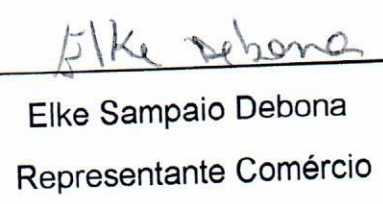 Elke Debona
Elke Sampaio Debona
Representante Comércio